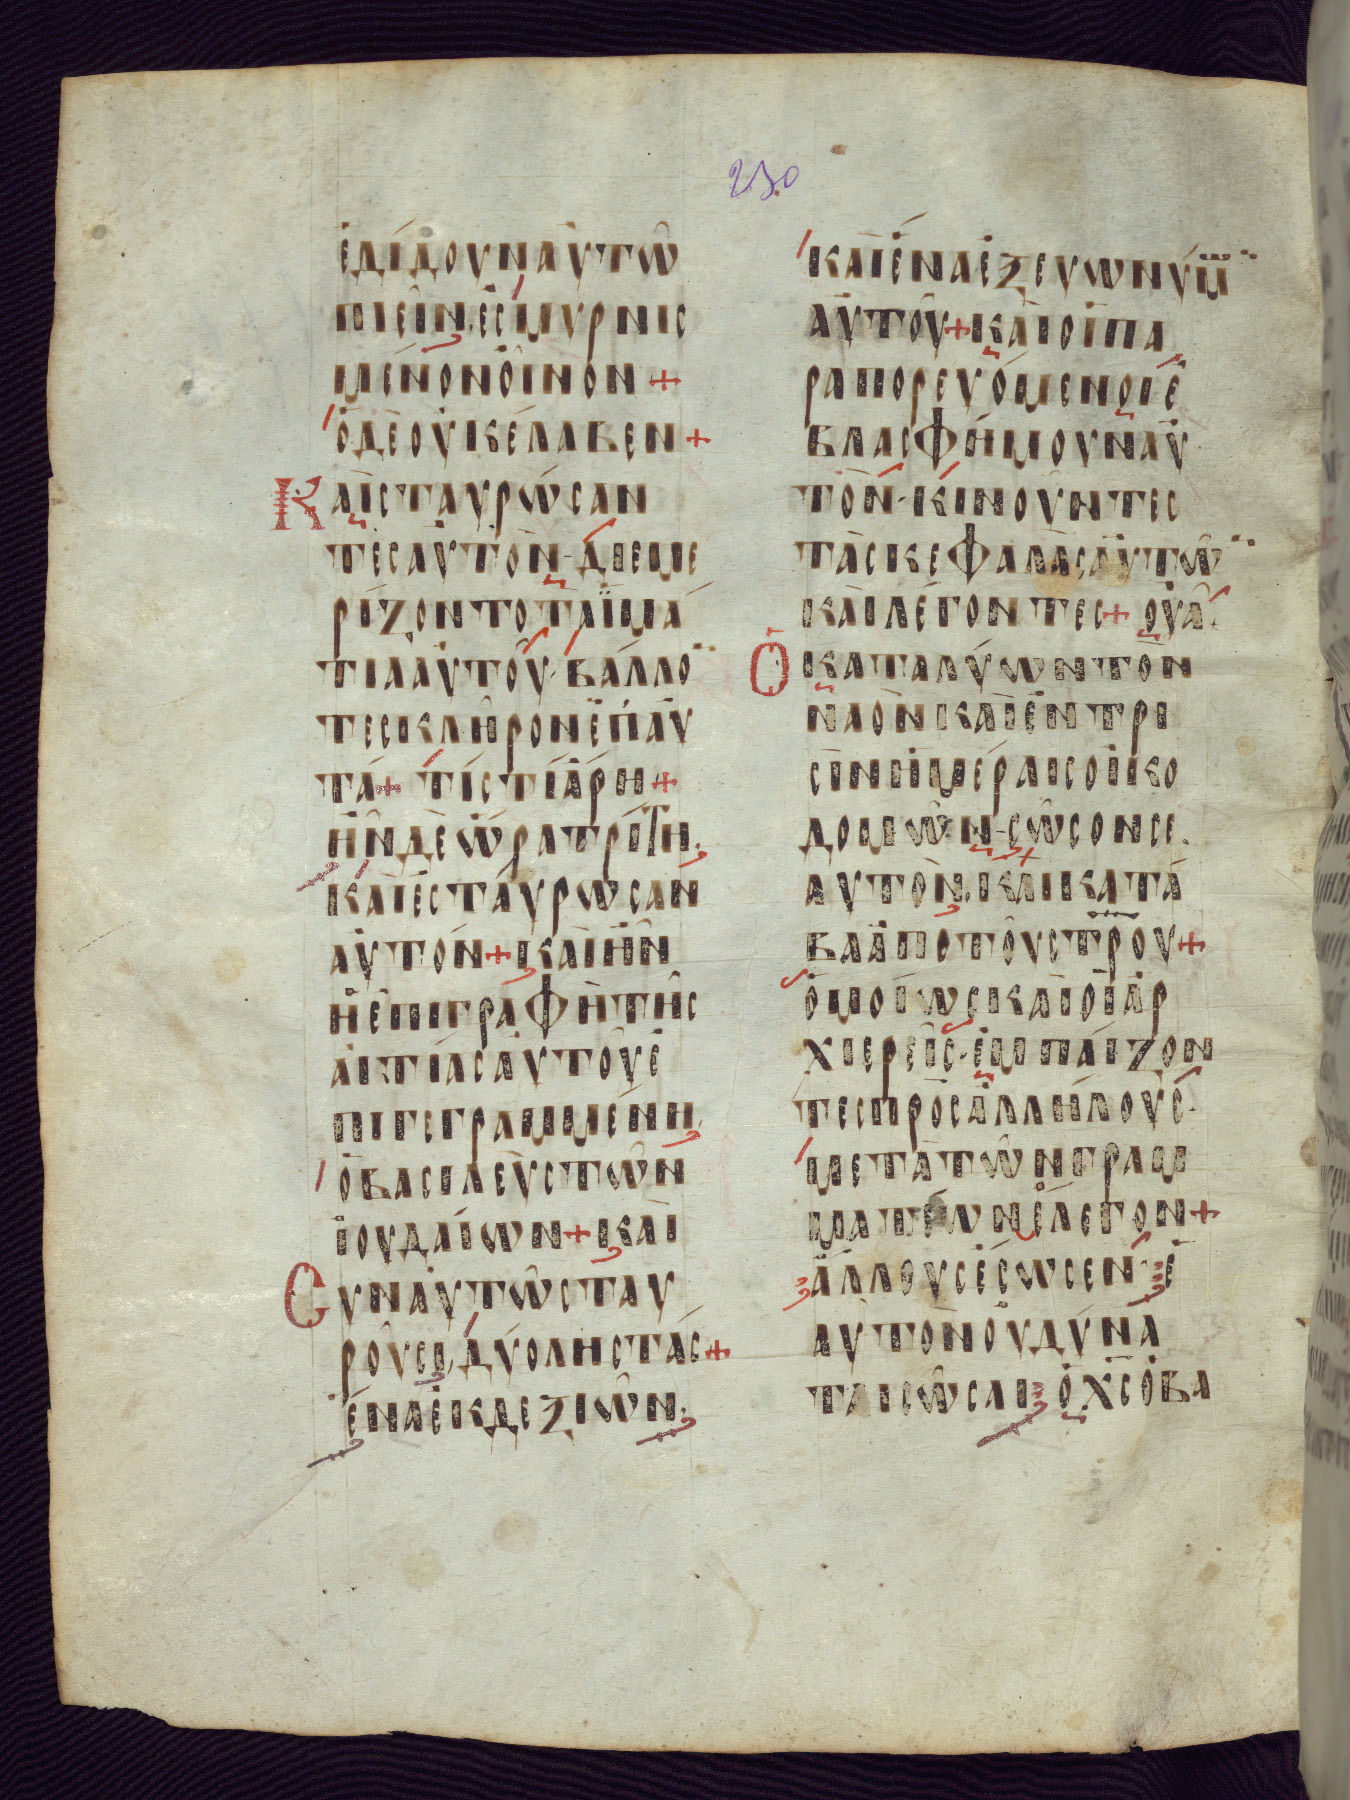 230
ἐδίδουν αὐτῶ
πιεῖν, ἐσμυρνισ
μένον οἶνον +
ὁ δὲ οὐκ ἔλαβεν +
Καὶ σταυρώσαν
τες αὐτὸν· διεμε
ρίζοντο τὰ ἱμά
τια αὐτοῦ· βάλλο¨
τες κλῆρον ἐπ' αὐ
τά + τίς τί ἄρη +
ἦν δὲ ὥρα τρίτη,
καὶ ἐσταύρωσαν
αὐτόν + καὶ ἦν
ἡ ἐπιγραφὴ τῆς
αἰτίας αὐτοῦ ἐ
πιγεγραμμένη,
ὁ βασιλεὺς τῶν
ἰουδαίων + καὶ
Σὺν αὐτῶ σταυ
ροῦσι, δύο ληστάς +
ἕνα ἐκ δεξιῶν,
καὶ ἕνα ἐξ εὐωνύμ¨
αὐτοῦ + καὶ οἱ πα
ραπορευόμενοι ἐ
βλασφήμουν αὐ
τόν· κινοῦντες
τὰς κεφαλὰς αὐτῶ¨
καὶ λέγοντες + οὐᾶ·
Ὁ καταλύων τὸν
ναὸν καὶ ἐν τρι
σὶν ἡμέραις οἰκο
δομῶν· σῶσον σε
αὐτὸν, καὶ κατά
βα ἀπὸ τοῦ στρου +
ὁμοίως καὶ οἱ ἀρ
χιερεῖς· ἐμπαίζον
τες πρὸς ἀλλήλους·
μετὰ τῶν γραμ
ματέων ἔλεγον +
ἄλλους ἔσωσεν· ἑ
αυτὸν οὐ δύνα
ται σῶσαι· ὁ χς ὁ βα